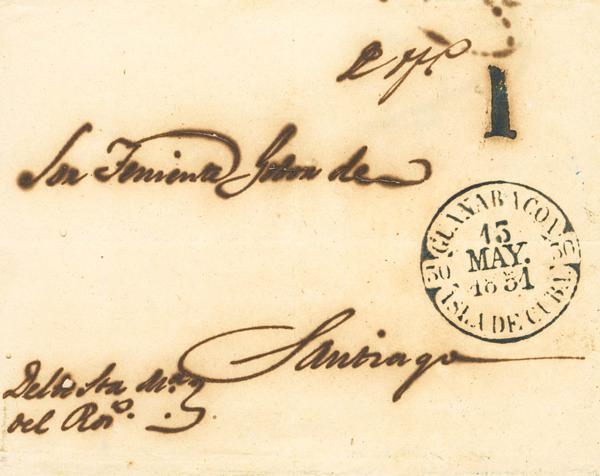 1
Sor Teniente Gobor de
GUANABACOA
13
MAY.
1851
30 30
ISLA DE CUBA.
Santiago
Del de Sta Ma
del Roso.